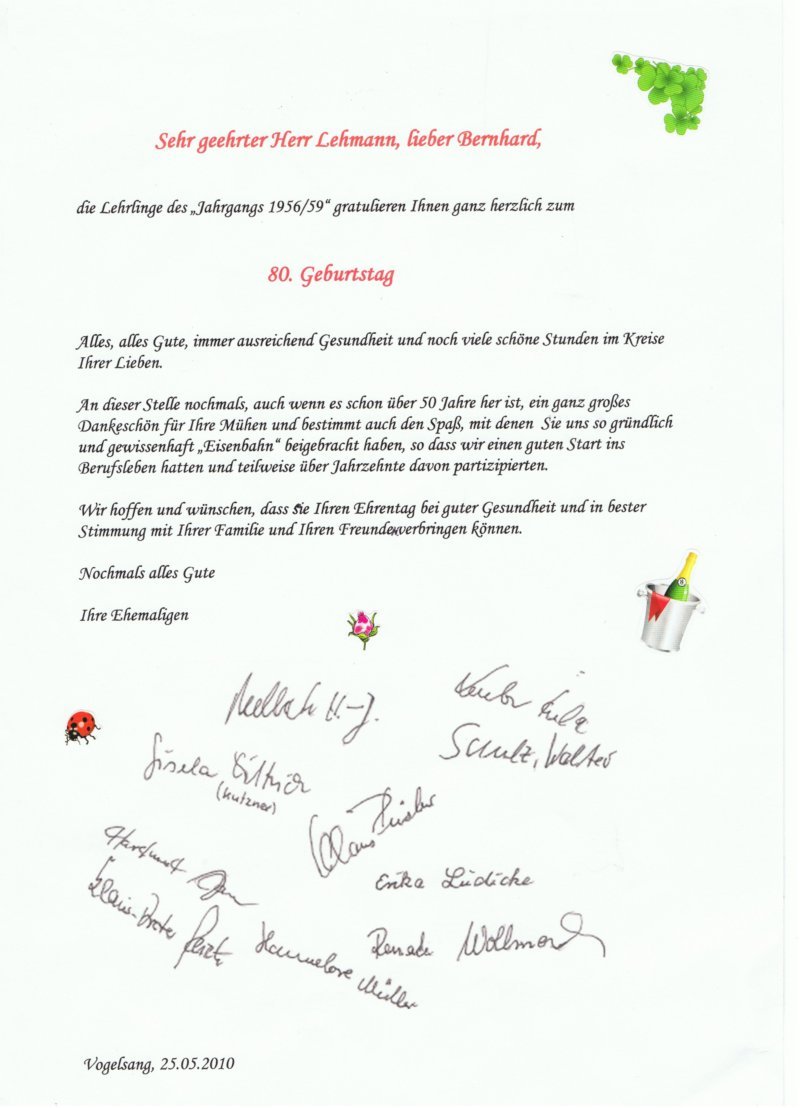 Sehr geehrter Herr Lehmann, lieber Bernhard,
die Lehrlinge des „Jahrgangs 1956/59“ gratulieren Ihnen ganz herzlich zum
80. Geburtstag
Alles, alles Gute, immer ausreichend Gesundheit und noch viele schöne Stunden im Kreise
Ihrer Lieben.
An dieser Stelle nochmals, auch wenn es schon über 50 Jahre her ist, ein ganz großes
Dankeschön für Ihre Mühen und bestimmt auch den Spaß, mit denen Sie uns so gründlich
und gewissenhaft „Eisenbahn“ beigebracht haben, so dass wir einen guten Start ins
Berufsleben hatten und teilweise über Jahrzehnte davon partizipierten.
Wir hoffen und wünschen, dass Sie Ihren Ehrentag bei guter Gesundheit und in bester
Stimmung mit Ihrer Familie und Ihren Freunden verbringen können.
Nochmals alles Gute
Ihre Ehemaligen
H.-J.
Schulz, Walter
Gisela Dittrich
(Kutzner)
Klaus
Hartmut
Erika Lüdicke
Klaus-Dieter
Hannelore Müller
Renate
Vogelsang, 25.05.2010